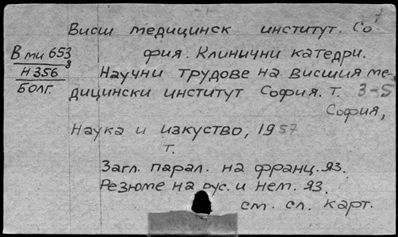 7
Висш медицинск институт. Со
фия. Клинични катедри.
В ми 653
8
Н 356
Болг.
Научни трудове на висшия ме-
дицински институт София. т. 3-5
София,
Наука и изкуство, 1957
т.
Загл. парал. на франц. яз.
Резюме на рус. и нем. яз.
см. сл. карт.